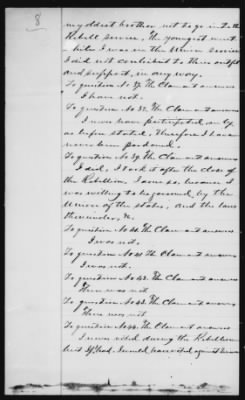 8
my oldest brother not to go into the
Rebell service, The youngest went
while I was in the Union service
I did not contribute to there outfit
and support, in any way.
To question No 37 The Claimant answers
I have not.
To question No 38. The Claimant answers
I never have participated, only
as before stated. Therefore I have
never been pardoned.
To question No 39. The Claimant answers
I did, I took it after the close of
the Rebellion, I done so, because I
was willing to be governed, by the
Union of the states, and the laws
thereunder, &c.
To question No 40. The Claimant answers
I was not.
To question No 41 The Claimant answers
I was not.
To question No 42. The Claimant answers
There was not
To question No 43. The Claimant answers
There was not
To question No 44. The Claimant answers
I never voted during the Rebellion
but if I had. I would have voted against